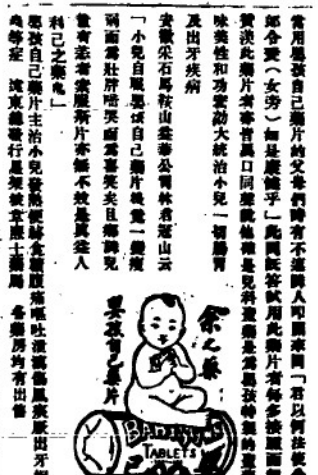 常用嬰孩自己藥片的父母們時有不速客人叩關來問「君以何法使
郎令愛(女旁)如是康健乎」此問旣答試用此藥片者每多接踵而
贊淡此藥片者亦皆異口同聲說他確是兒科靈藥是為嬰孩特製的
味美性和功安効大統治小兒一切腸胃
及出牙疾病
安徽采石馬鞍山益華公司林君冠山云
「小兒自服嬰孩自己藥片後竟一變瘦
弱而為壯胖啼哭而為喜笑矣且鄉隣兒
童有恙者索服斯片亦無不效是眞益人
利己之藥也」
嬰孩自己藥片主治小兒發熱便秘食積腹痛嘔吐泄瀉傷風痰厥出牙
等症 遠東總發行是架披章廉士藥局 各藥房均有出售
余之藥
嬰孩自己藥片
BABY'S OWN
TABLETS